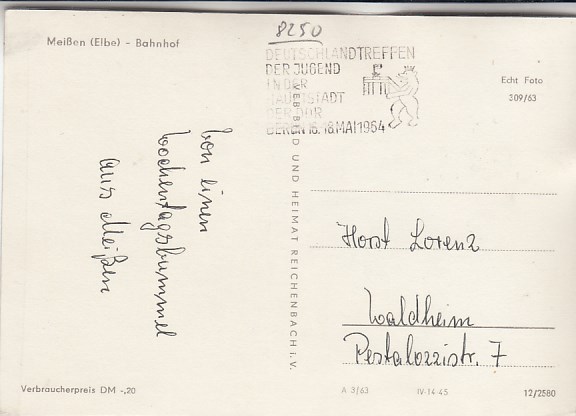 8250
Meißen (Elbe) - Bahnhof
DEUTSCHLANDTREFFEN
DER JUGEND
IN DER
HAUPTSTADT
DER DDR
BERLIN 16.-18.MAI 1964
Echt Foto
309/63
Von einen
Wochentagsbummel
aus Meißen
VEB BILD UND HEIMAT REICHENBACH i. V.
Horst Lorenz
Waldheim
Pestalozzistr. 7
Verbraucherpreis DM -,20
A 3/63 IV-14-45 12/2580